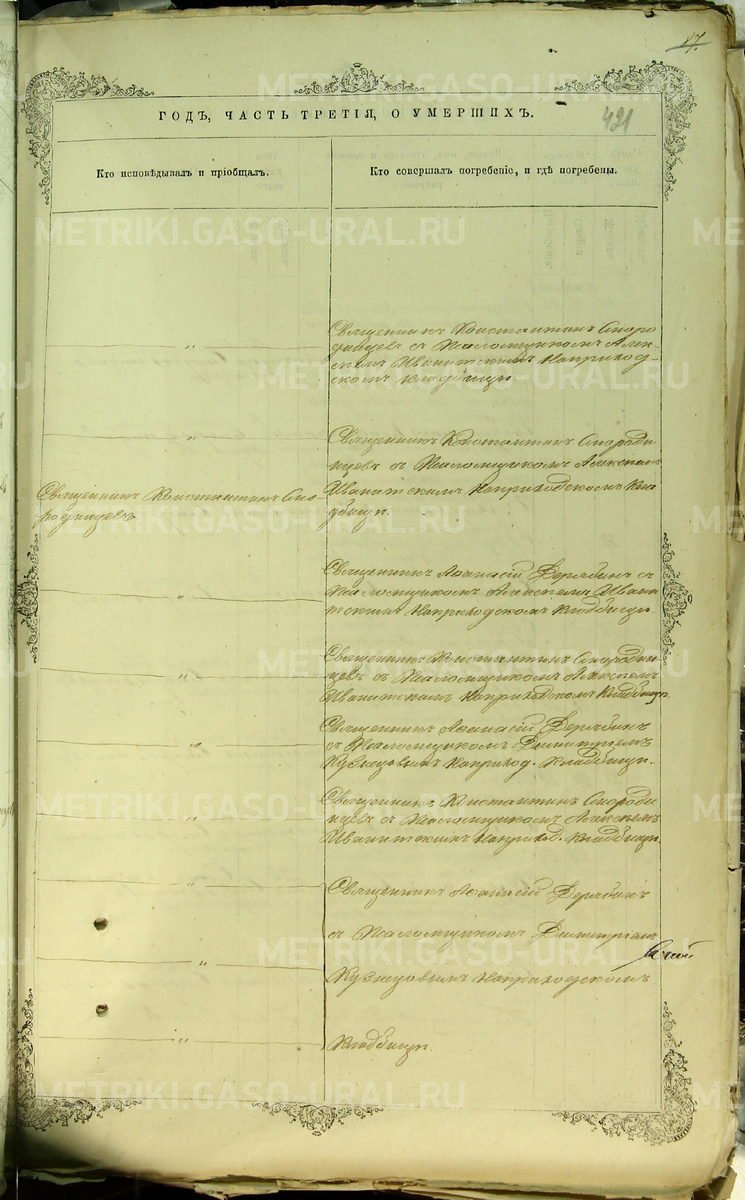 87.
ГОДЪ, ЧАСТЬ ТРЕТІЯ, О УМЕРШИХЪ.
421
Кто исповѣдывалъ и пріобщалъ.
Кто совершалъ погребеніе, и гдѣ погребены.
METRIKI.GASO-URAL.RU
Священникъ Константинъ Сморо
динцевъ съ Псаломщикомъ Алек-
Иваницкимъ На приход-
скомъ кладбищѣ.
Священникъ Константинъ Смороди
нцевъ съ Псаломщикомъ Алексѣемъ
Иваницкимъ На приходскомъ Кла
дбищѣ.
Священникъ Константинъ Смо-
родинцевъ
Священникъ Аѳанасій Дерябинъ съ
Псаломщикомъ Алексѣемъ Ивани
цкимъ На приходскомъ Кладбищѣ.
Священникъ Константинъ Смороди
нцевъ съ Псаломщикомъ Алексѣемъ
Иваницкимъ На приходскомъ Кладбищѣ
Священникъ Аѳанасій Дерябинъ
съ Псаломщикомъ Димитріемъ
Кузнецовымъ На приход. Кладбищѣ.
Священникъ Константинъ Смороди
нцевъ съ Псаломщикомъ Алексѣемъ
Иваницкимъ На приход. Кладбищѣ.
Священникъ Аѳанасій Дерябинъ
съ Псаломщикомъ Димитріемъ
Кузнецовымъ На приходскомъ
Кладбищѣ.